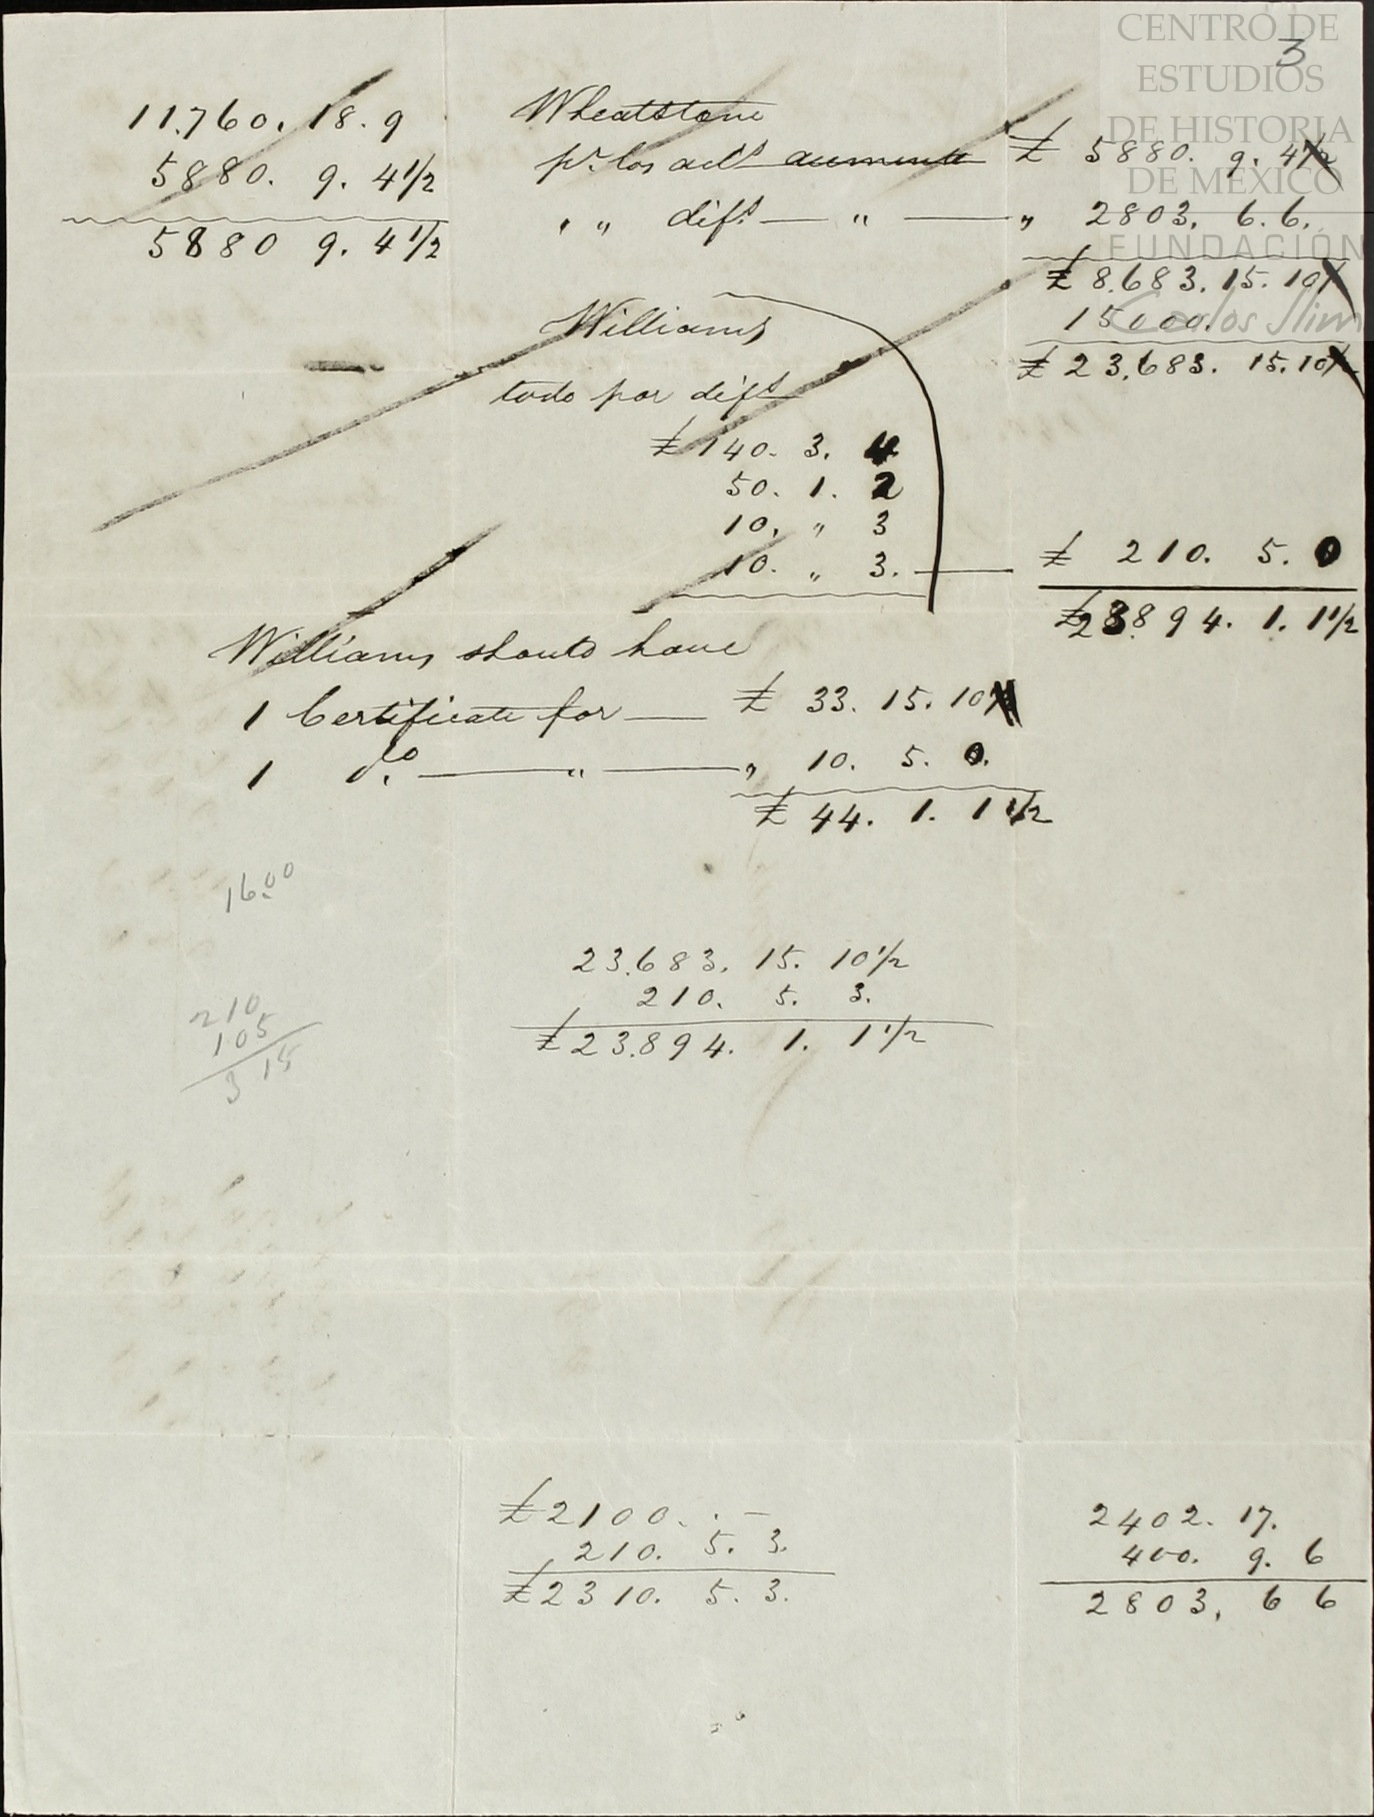 CENTRO DE
ESTUDIOS
DE HISTORIA
DE MÉXICO
FUNDACIÓN
Carlos Slim
3
11.760. 18. 9
5880. 9. 4 1/2
5880 9. 4 1/2
Wheatstone
pr. los adts aumento £ 5880. 9. 4 1/2
" " difs — " — " 2803. 6. 6.
£ 8.683. 15. 10
15000.
£ 23,683. 15. 10
Williams
todo por difs
£ 140. 3. 4
50. 1. 2
10. " 3
10. " 3. — £ 210. 5. 0
£ 23894. 1. 1 1/2
Williams should have
1 Certificate for — £ 33. 15. 10
1 do. — " — " 10. 5. 0.
£ 44. 1. 1 1/2
16.00
23.683. 15. 10 1/2
210. 5. 3.
£ 23.894. 1. 1 1/2
210
105
315
£ 2100. . —
210. 5. 3.
£ 2310. 5. 3.
2402. 17.
400. 9. 6
2803, 6 6